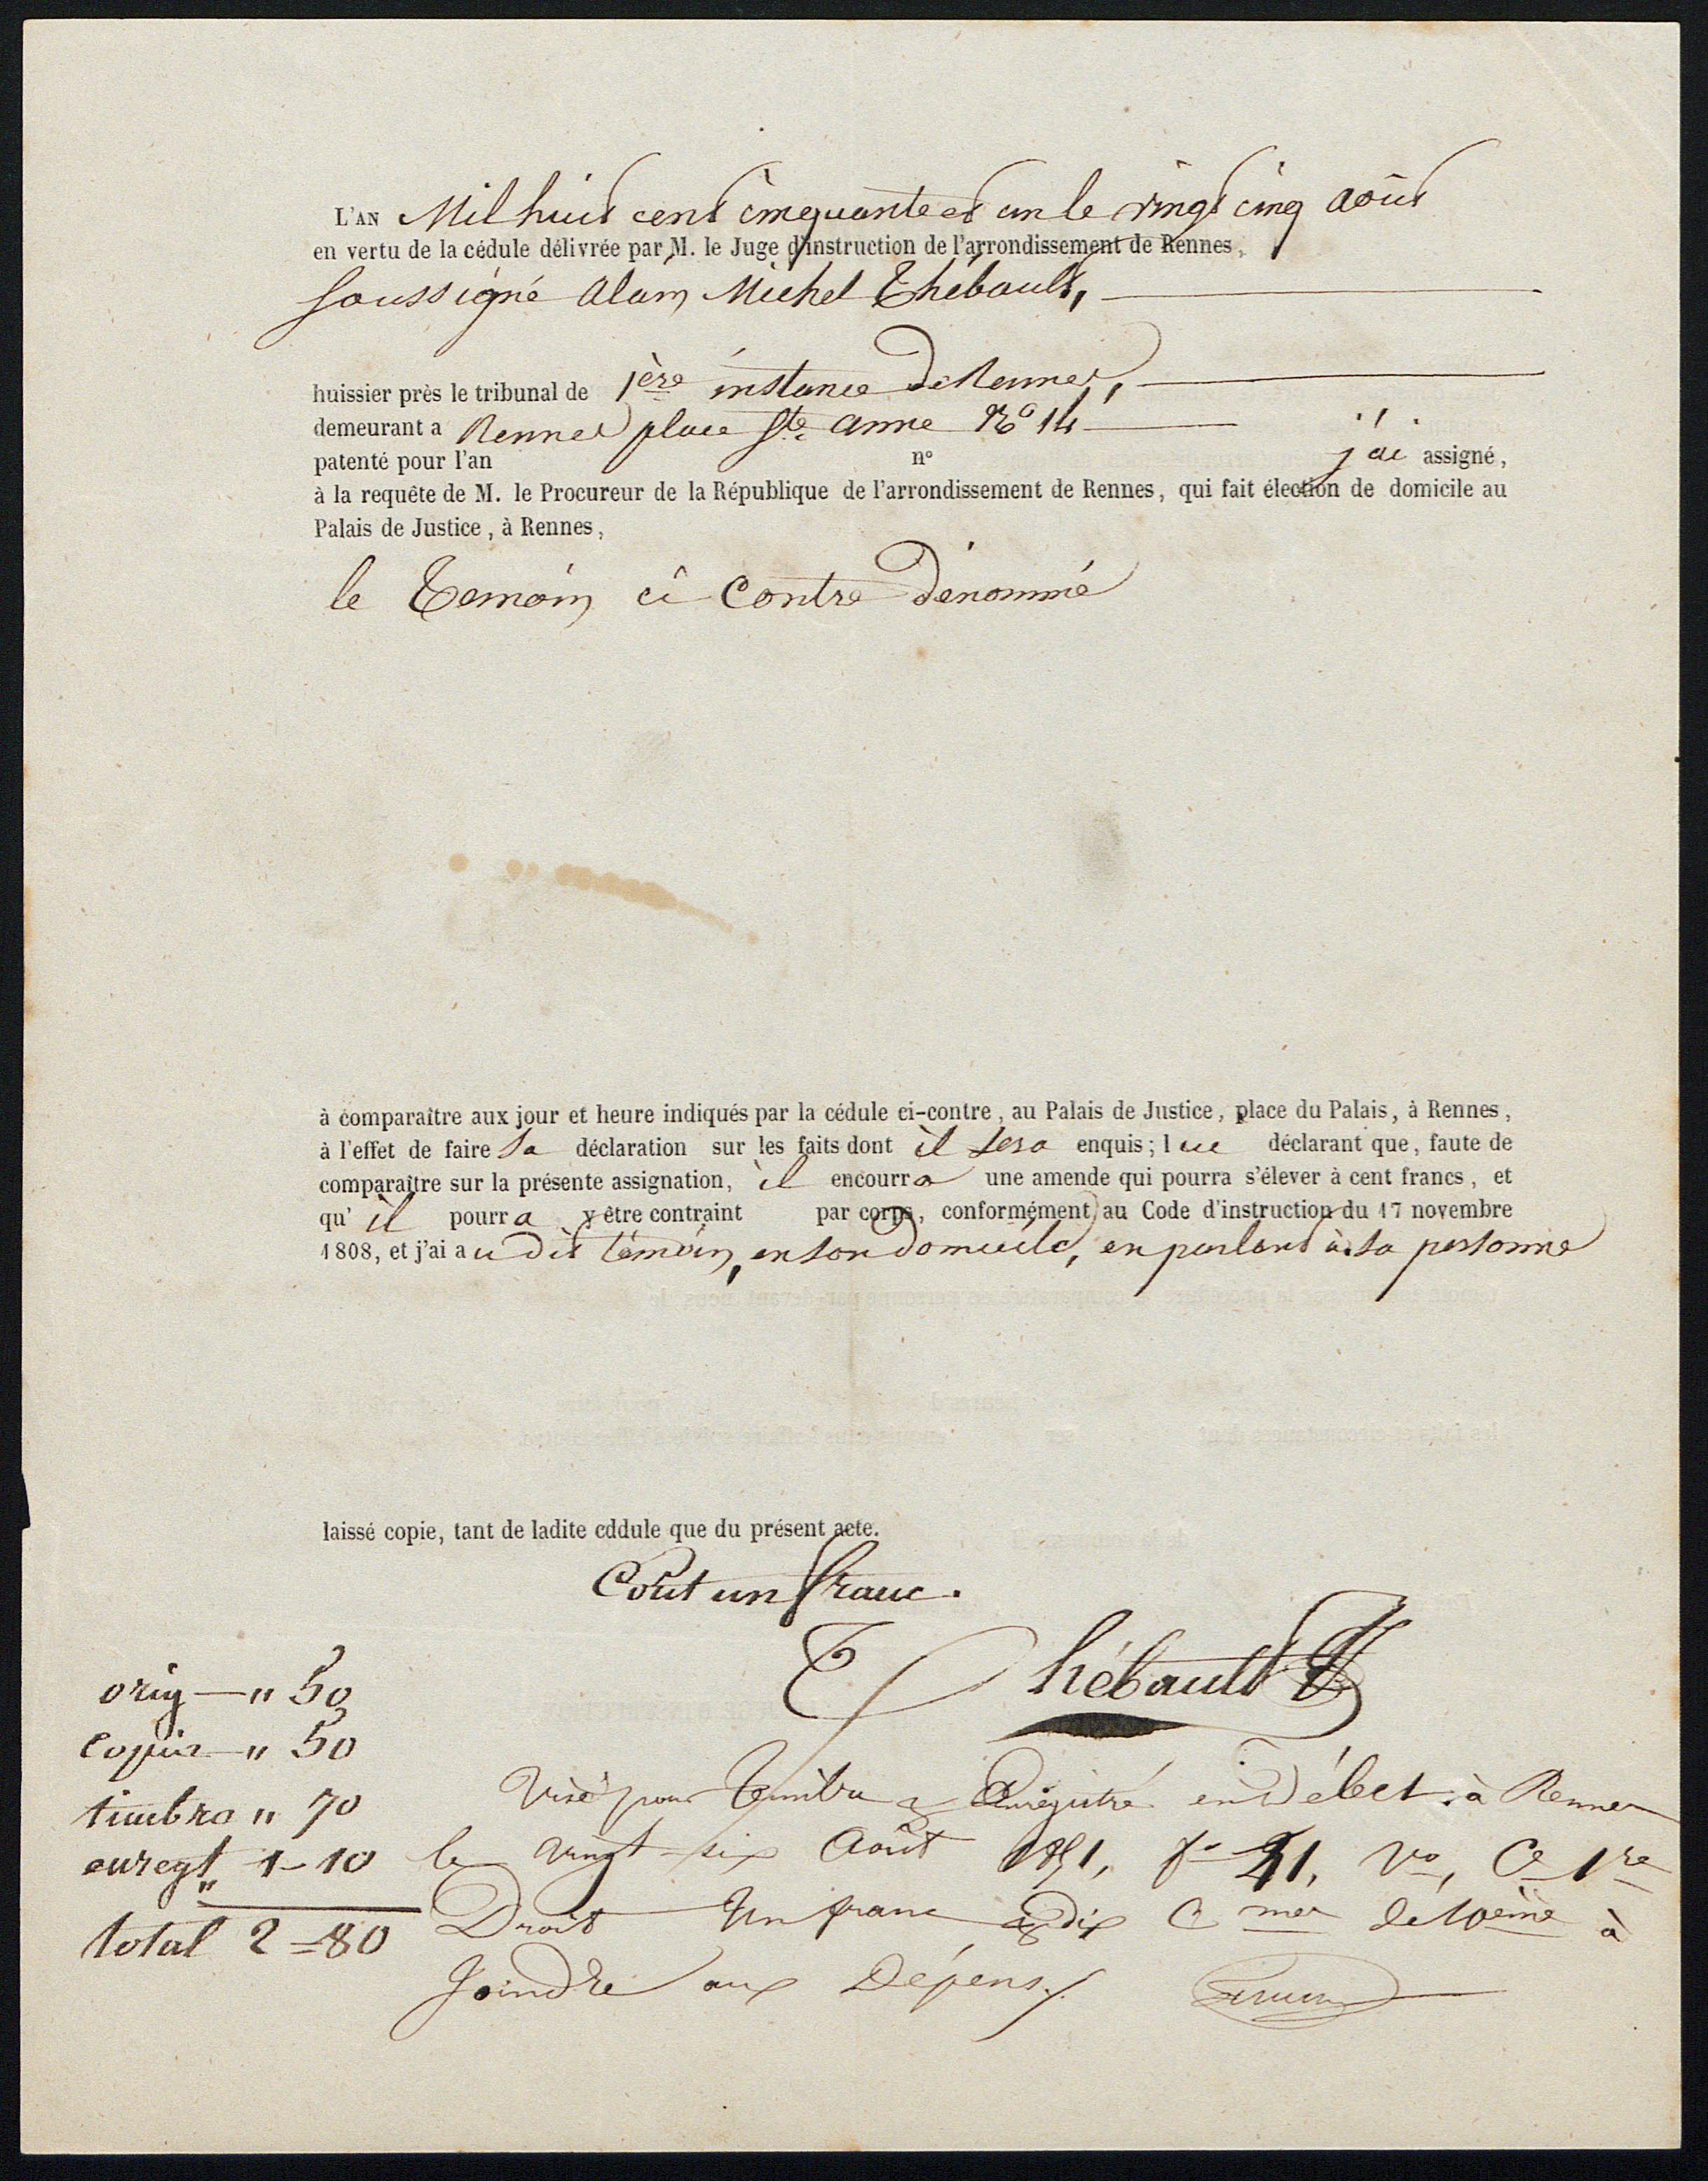 L'AN Mil huit cent cinquante et un le vingt cinq août
en vertu de la cédule délivrée par M. le Juge d'instruction de l'arrondissement de Rennes,
soussigné Alain Michel Thébault,
huissier près le tribunal de 1ère instance de Rennes,
demeurant a Rennes place Ste Anne No 14
patenté pour l'an n° j'ai assigné,
à la requête de M. le Procureur de la République de l'arrondissement de Rennes, qui fait élection de domicile au
Palais de Justice, à Rennes,
le Temoin ci contre dénommé
à comparaître aux jour et heure indiqués par la cédule ci-contre, au Palais de Justice, place du Palais, à Rennes,
à l'effet de faire sa déclaration sur les faits dont il sera enquis; lui déclarant que, faute de
comparaître sur la présente assignation, il encourra une amende qui pourra s'élever à cent francs, et
qu'il pourra y être contraint par corps, conformément au Code d'instruction du 17 novembre
1808, et j'ai au dit témoin, en son domicile, en parlant à sa personne
laissé copie, tant de ladite cddule que du présent acte.
Coût un franc.
Thébault
orig — " 50
copie — " 50
timbre " 70
enregt 1 - 10
total 2 = 80
Visé pour timbre & Enregistré en Débet à Rennes
le vingt-six Août 1851, f° 21, Vo, Ce 1re
Droit Un franc dix Cmes de 10ème à
Joindre aux Dépens./.